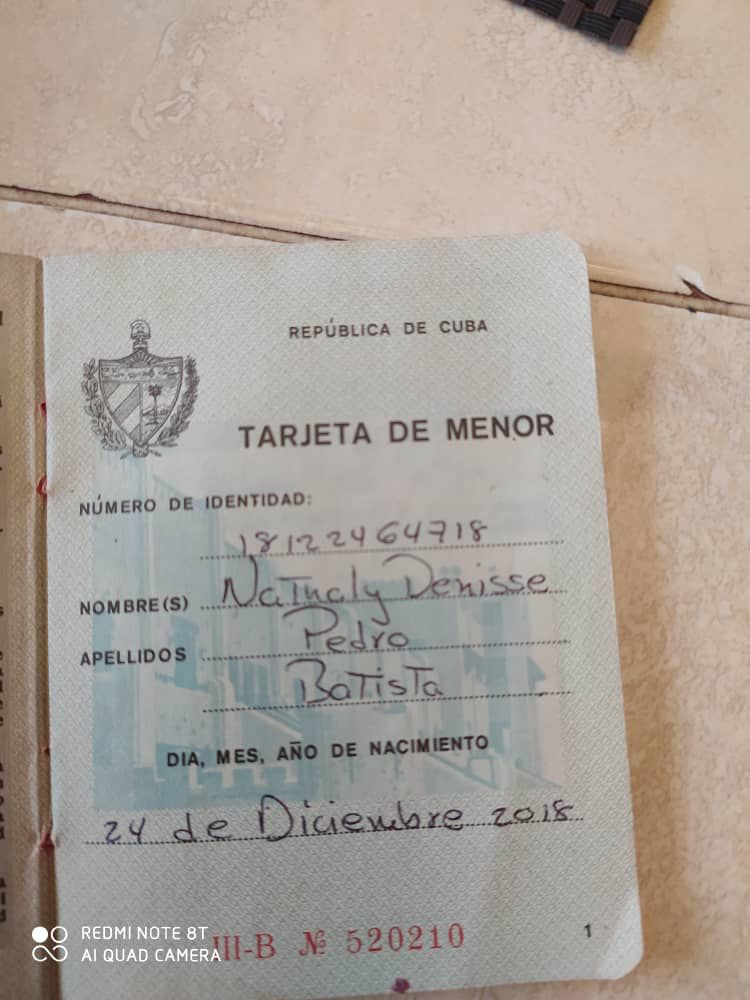 REPÚBLICA DE CUBA
TARJETA DE MENOR
NÚMERO DE IDENTIDAD:
18122464718
NOMBRE(S) Nathaly Denisse
APELLIDOS Pedro
Batista
DIA, MES, AÑO DE NACIMIENTO
24 de Diciembre 2018
III-B № 520210
1
REDMI NOTE 8T
AI QUAD CAMERA